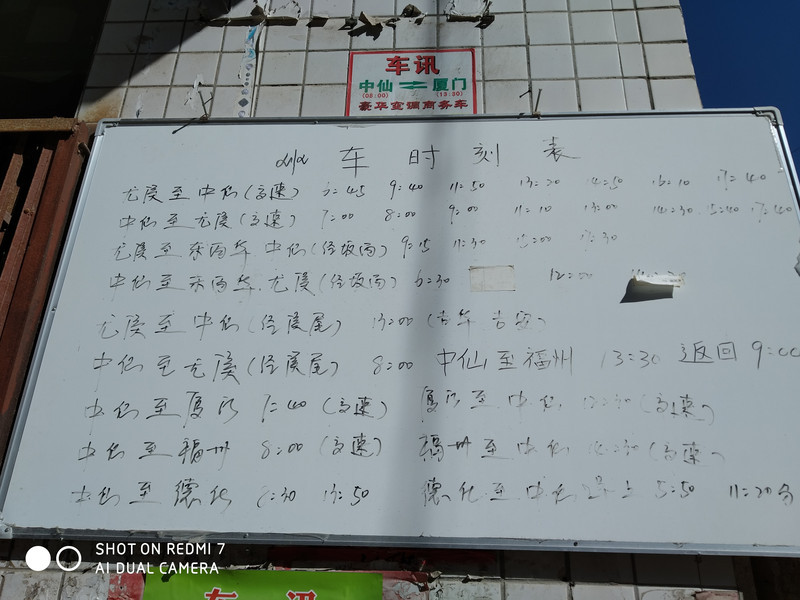 车讯
中仙 ⇌ 厦门
(08:00) (15:30)
豪华空调商务车
车时刻表
尤溪至中仙(高速) 9:40 11:50 13:20 14:50 16:10 17:40
中仙至尤溪(高速) 7:00 8:00 9:00 11:10 13:00 14:30 15:40 17:40
尤溪至 中仙(经坂面) 9:15 11:30 15:00 17:30
中仙至 尤溪(经坂面) 6:30 12:00
尤溪至中仙(经溪尾) 13:00
中仙至尤溪(经溪尾) 8:00 中仙至福州 13:30 返回 9:00
中仙至厦门 7:40 (高速) 厦门至中仙 (高速)
中仙至福州 8:00 (高速) 福州至中仙 (高速)
中仙至德化 13:50 德化至中仙 5:50 11:20分
SHOT ON REDMI 7
AI DUAL CAMERA
车讯